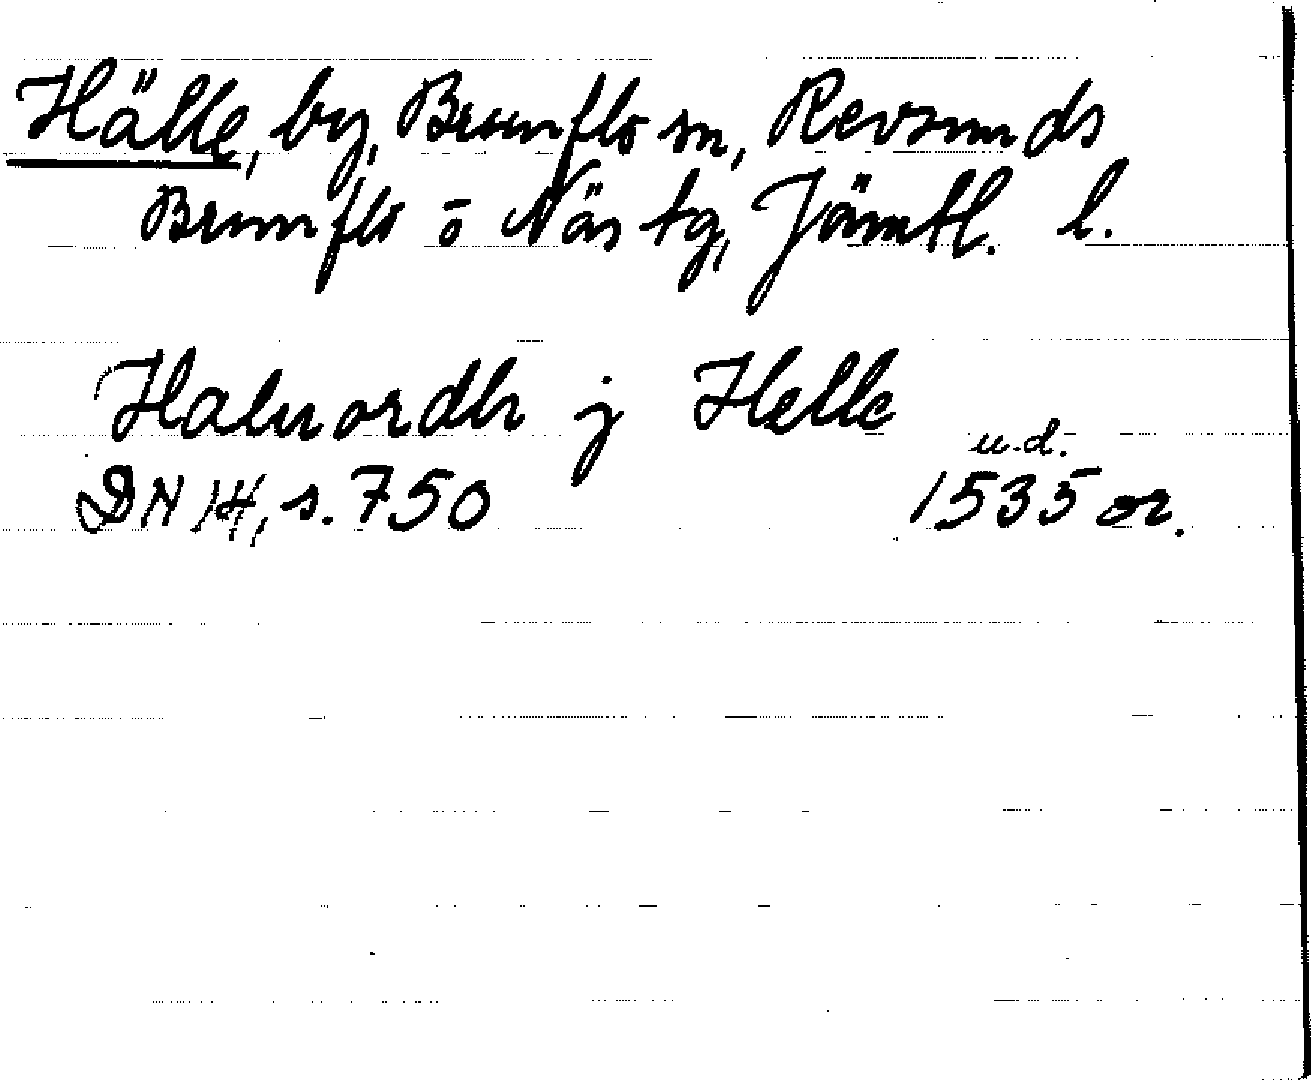 Hälle, by, Brunflo sn, Revsunds
Brunflo o Näs tg, Jämtl. l.
Haluordh j Helle
u.d.
DN 14, s. 750 1535 or.